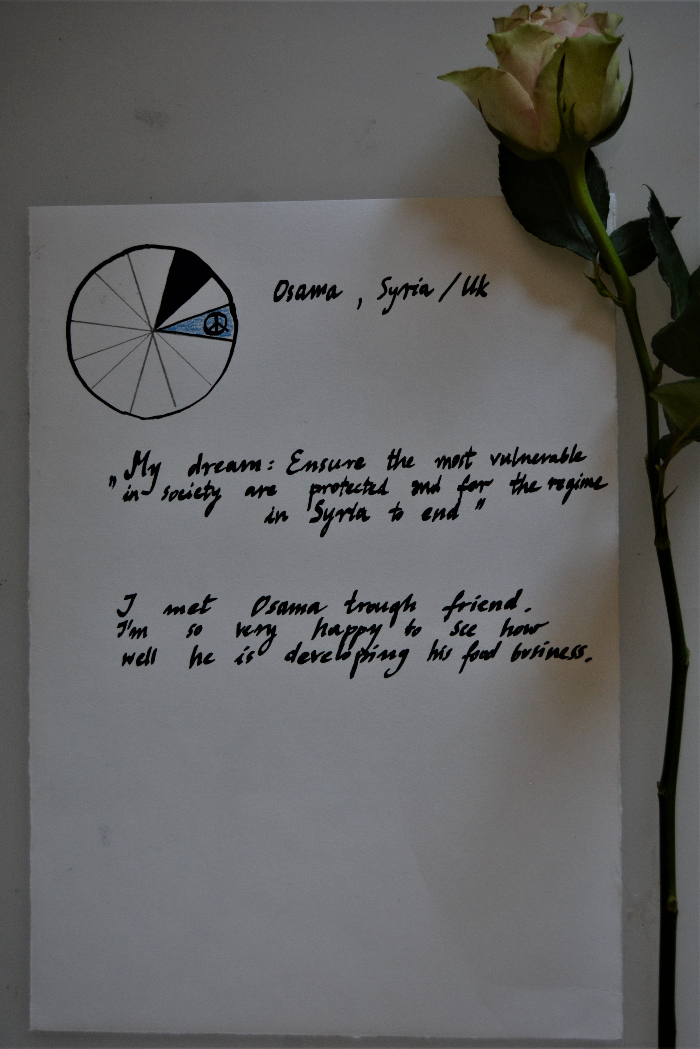 Osama , Syria / Uk
"My dream: Ensure the most vulnerable
in society are protected and for the regime
in Syria to end"
I met Osama trough friend.
I'm so very happy to see how
well he is developing his food business.